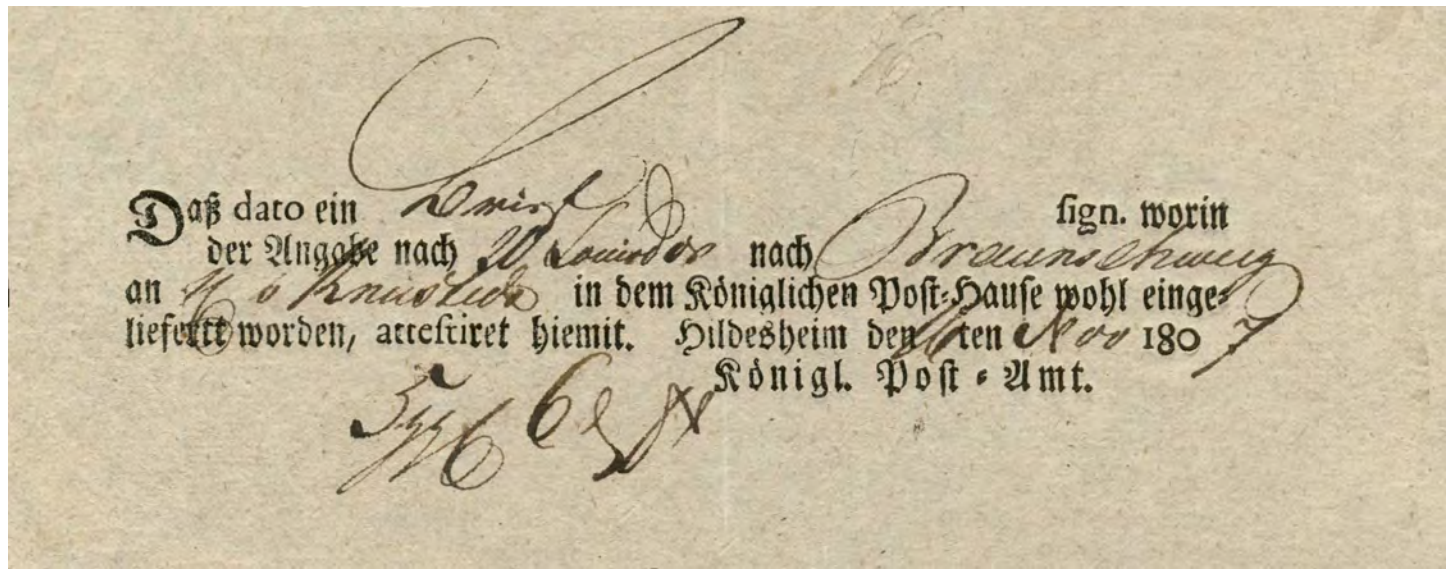 Daß dato ein Brief sign. worin
der Angabe nach 20 Louisdor nach Braunschweig
an in dem Königlichen Post-Hause wohl einge-
liefertt worden, attestiret hiemit. Hildesheim den 16ten Nov 1807
Königl. Post-Amt.